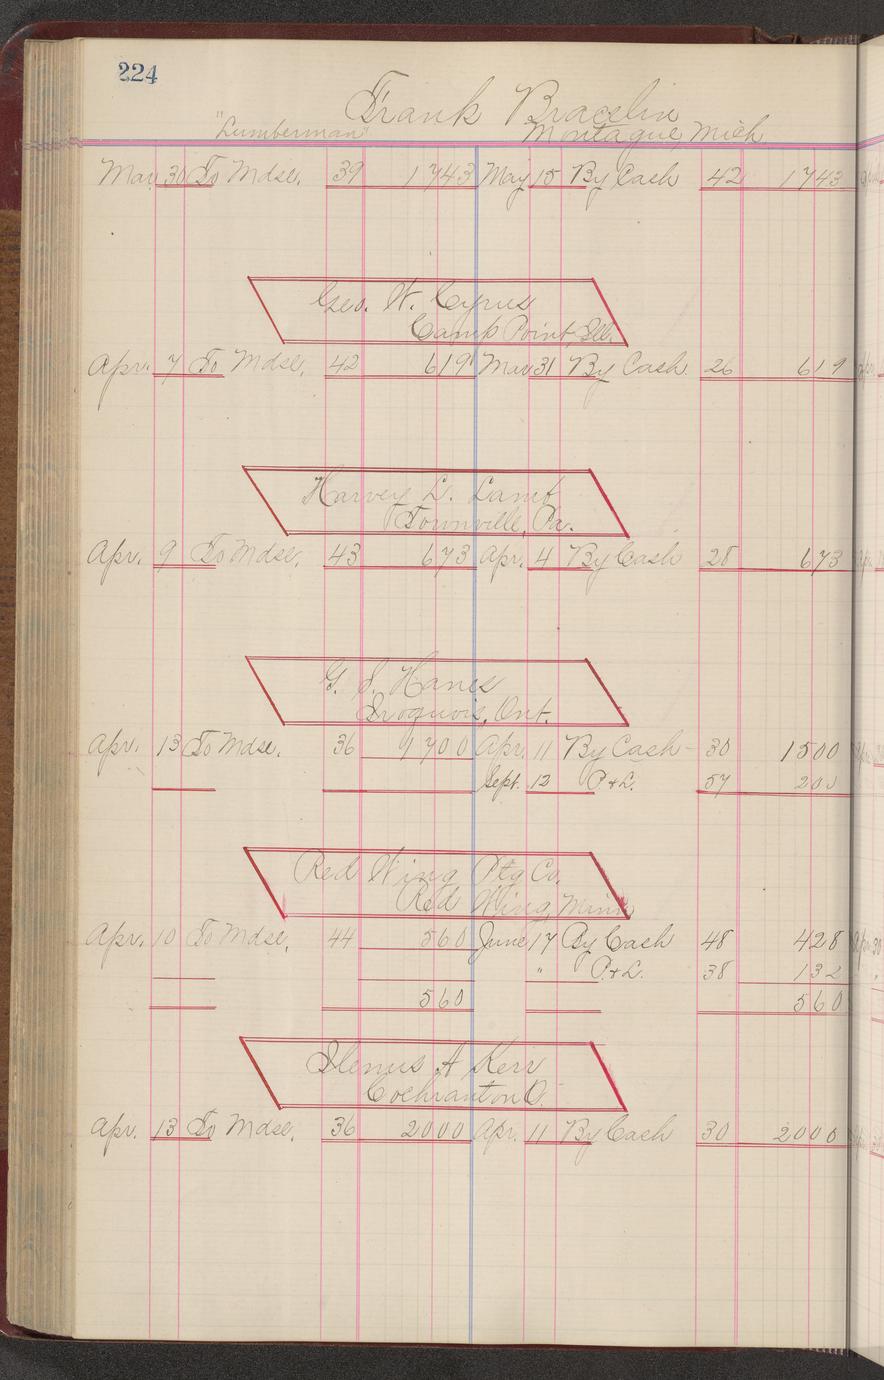 224
Frank Bracelin
"Lumberman" Montague, Mich.
Mar 30 To Mdse. 39 1743 May 15 By Cash 42 1743
Geo. W. Cyrus
Camp Point, Ill.
Apr. 7 To Mdse. 42 619 Mar 31 By Cash 26 619
Harvey L. Lamb
Townville, Pa.
Apr. 9 To Mdse. 43 673 Apr. 4 By Cash 28 673
G. S. Hanes
Iroquois, Ont.
Apr. 13 To Mdse. 36 1700 Apr. 11 By Cash 30 1500
Sept. 12 P.&L. 57 200
Red Wing Ptg Co.
Red Wing, Minn
Apr. 10 To Mdse. 44 560 June 17 By Cash 48 428
" P.&L. 38 132
560 560
A Kerr
Cochranton O.
Apr. 13 To Mdse. 36 2000 Apr. 11 By Cash 30 2000